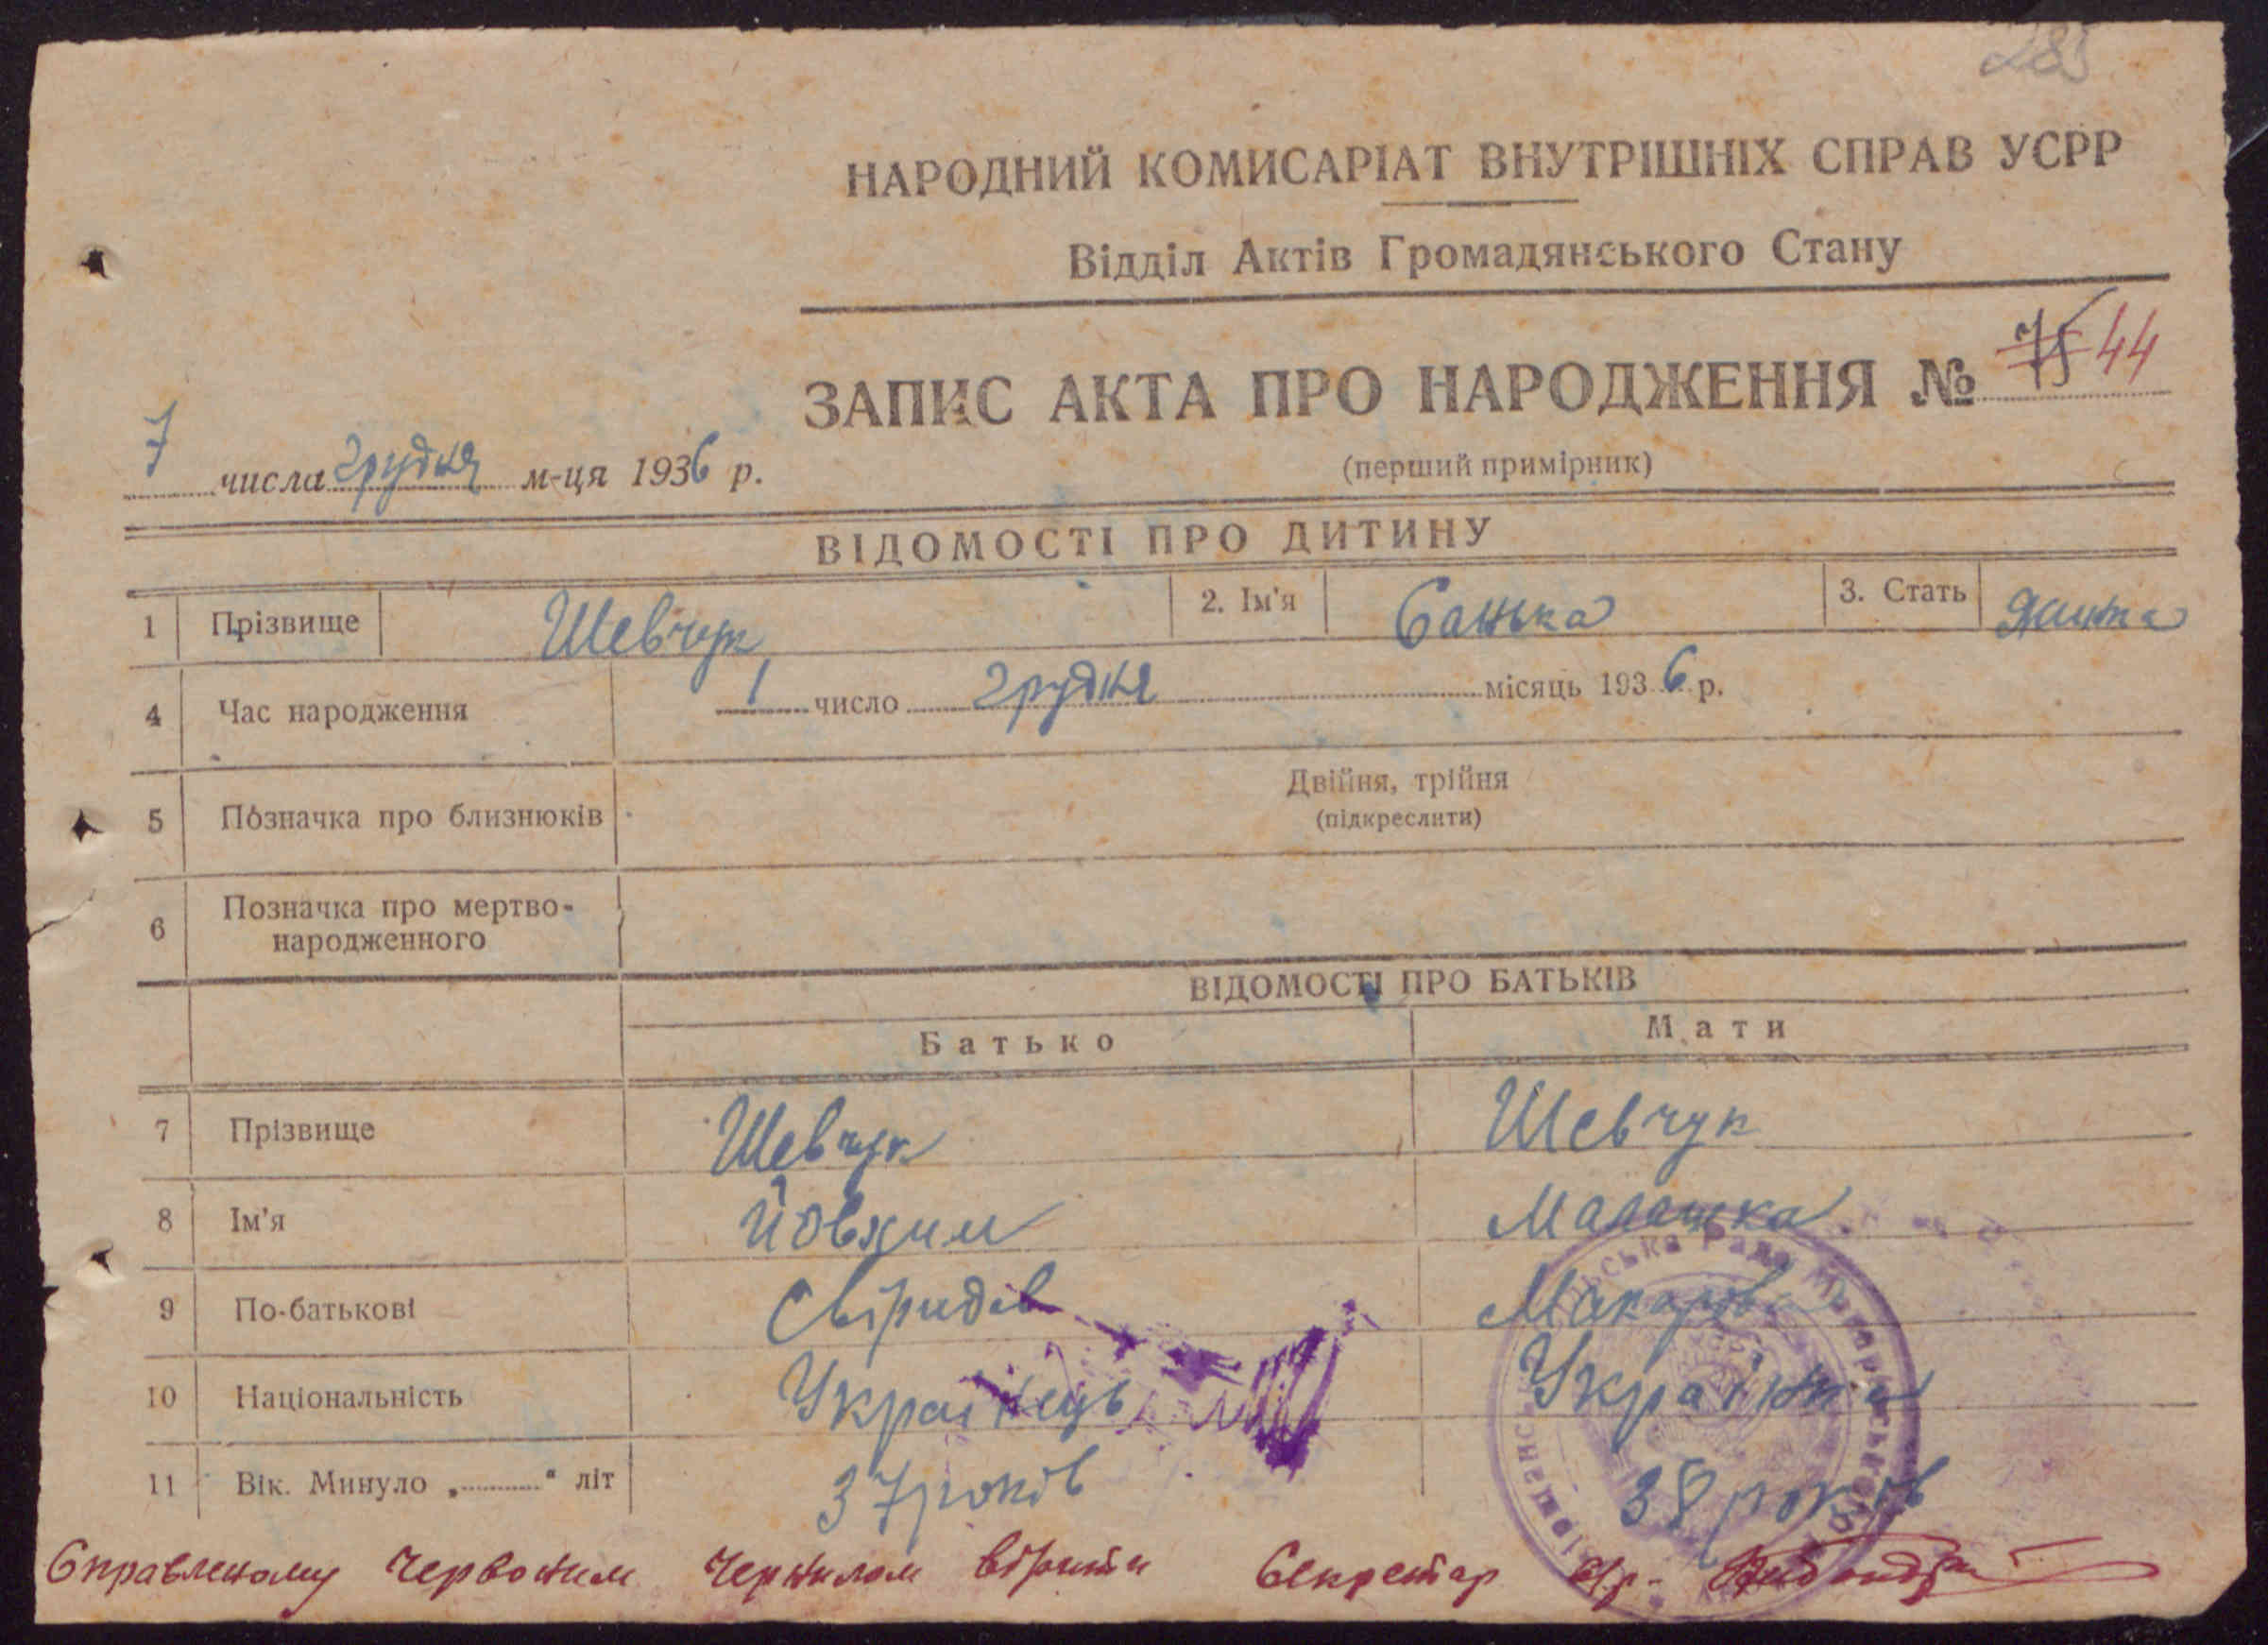 283
НАРОДНИЙ КОМИСАРІАТ ВНУТРІШНІХ СПРАВ УСРР
Відділ Актів Громадянського Стану
ЗАПИС АКТА ПРО НАРОДЖЕННЯ № 75 44
(перший примірник)
7 числа грудня м-ця 1936 р.
ВІДОМОСТІ ПРО ДИТИНУ
1 Прізвище Шевчук 2. Ім'я Санька 3. Стать
4 Час народження 1 число грудня місяць 1936 р.
5 Позначка про близнюків Двійня, трійня
(підкреслити)
6 Позначка про мертво-
народженного
ВІДОМОСТІ ПРО БАТЬКІВ
Батько Мати
7 Прізвище Шевчук Шевчук
8 Ім'я Йовхим Малашка
9 По-батькові Свіридів Макарова
10 Національність Українець Українка
11 Вік. Минуло „..........“ літ 37 років 38 років
Справленому червоним чернилом вірити Секретар с/р.